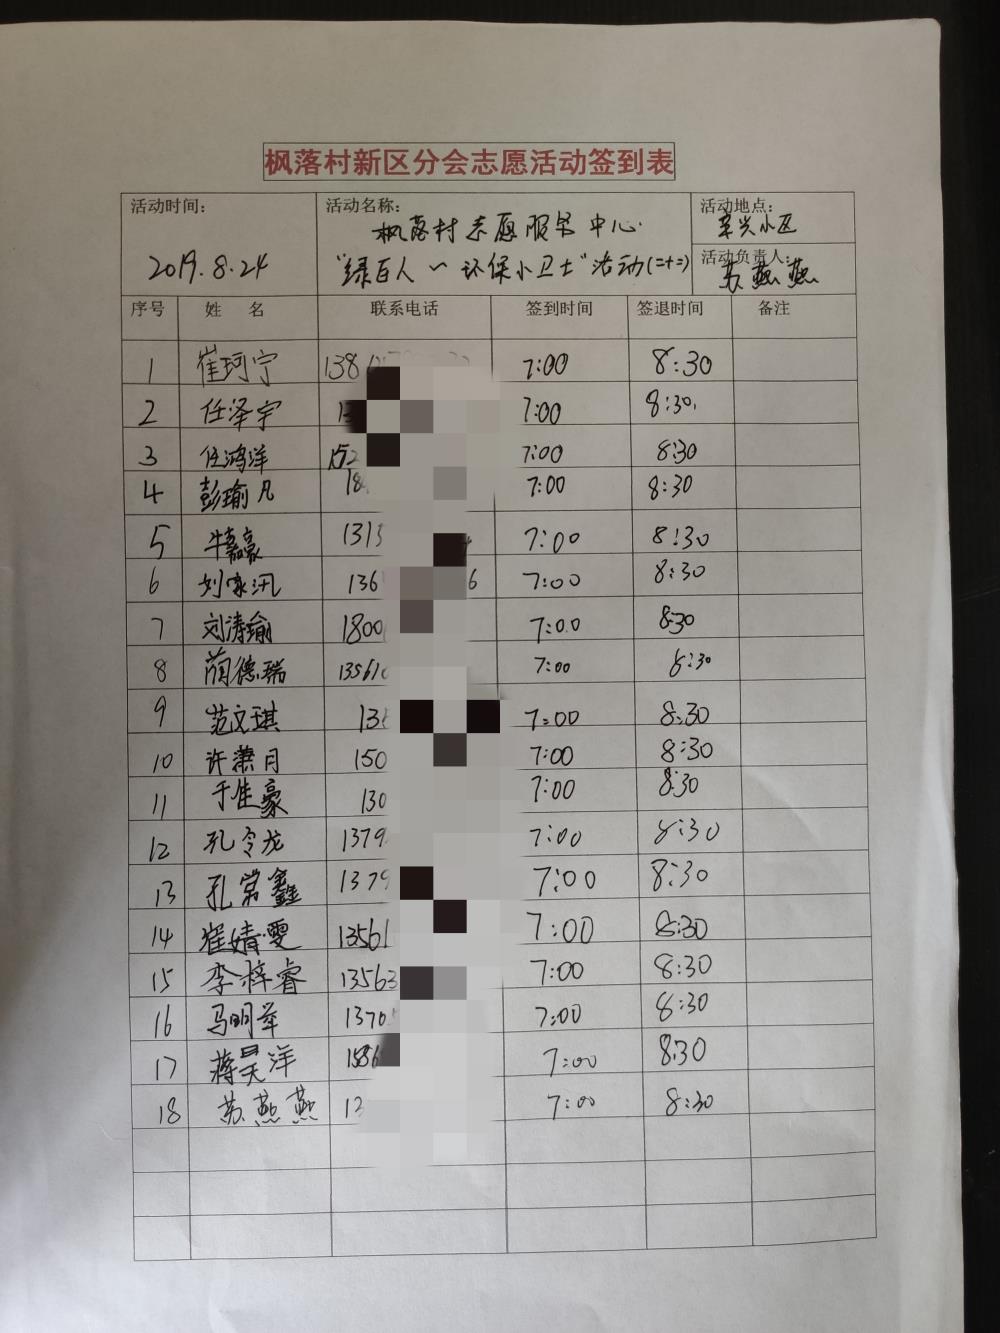 枫落村新区分会志愿活动签到表
活动时间： 活动名称： 活动地点：
枫落村志愿服务中心 幸兴小区
2019.8.24 "绿百人～环保小卫士"活动(二十二) 活动负责人： 苏燕燕
序号 姓 名 联系电话 签到时间 签退时间 备注
1 崔珂宁 138 7:00 8:30
2 任泽宇 7:00 8:30
3 任鸿洋 152 7:00 8:30
4 彭瑜凡 18 7:00 8:30
5 牛嘉豪 1313 7:00 8:30
6 刘家汛 136 6 7:00 8:30
7 刘涛瑜 1800 7:00 8:30
8 德瑞 13561 7:00 8:30
9 范文琪 13 7:00 8:30
10 许萧月 150 7:00 8:30
11 于佳豪 130 7:00 8:30
12 孔令龙 1379 7:00 8:30
13 孔常鑫 1379 7:00 8:30
14 崔婧雯 13561 7:00 8:30
15 李梓睿 13563 7:00 8:30
16 马明举 1370 7:00 8:30
17 蒋昊洋 7:00 8:30
18 苏燕燕 13 7:00 8:30